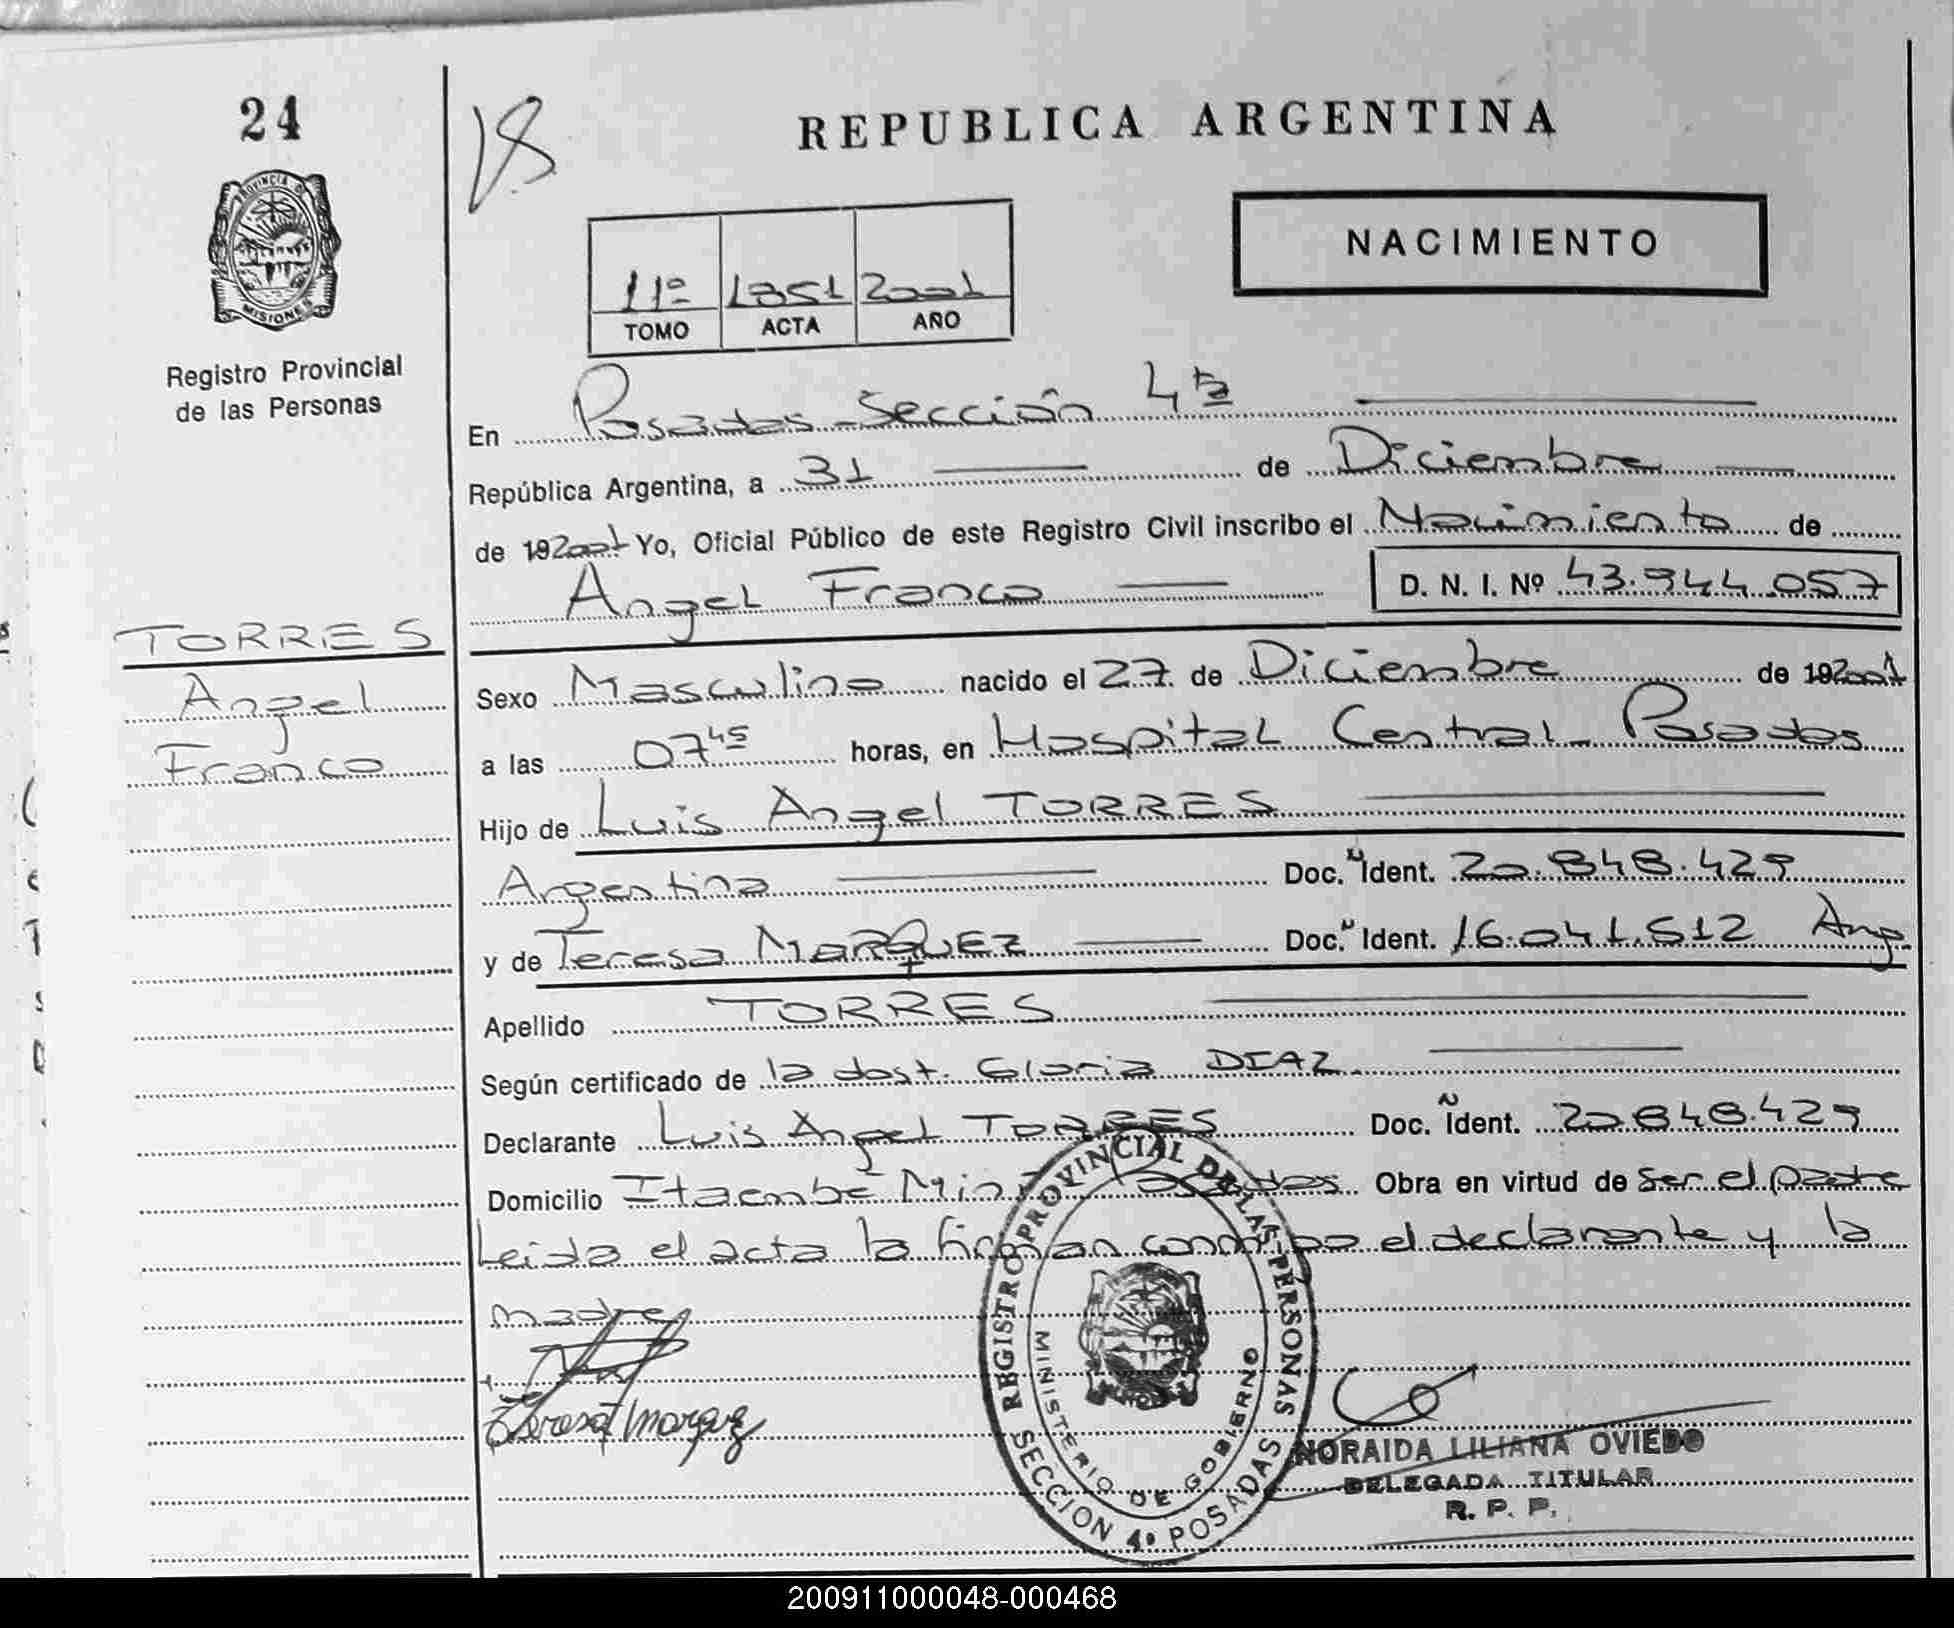 24
18
REPUBLICA ARGENTINA
PROVINCIA DE MISIONES
NACIMIENTO
11º 1851 2001
TOMO ACTA AÑO
Registro Provincial
de las Personas
En Posadas - Sección 4ta
República Argentina, a 31 de Diciembre
de 192001 Yo, Oficial Público de este Registro Civil inscribo el Nacimiento de
Angel Franco D. N. I. Nº 43.944.057
TORRES
Angel
Franco
Sexo Masculino nacido el 27 de Diciembre de 192001
a las 07 45 horas, en Hospital Central - Posadas
Hijo de Luis Angel TORRES
Argentina Doc. N Ident. 20.848.429
y de Teresa MARQUEZ Doc. N Ident. 16.041.512 Arg.
Apellido TORRES
Según certificado de la obst. Gloria DIAZ
Declarante Luis Angel TORRES Doc. N Ident. 20.848.429
Domicilio Itaembé Miní Posadas Obra en virtud de ser el padre
Leída el acta la firman conmigo el declarante y la
madre
Teresa Marquez
REGISTRO PROVINCIAL DE LAS PERSONAS
MINISTERIO DE GOBIERNO
SECCION 4º POSADAS
NORAIDA LILIANA OVIEDO
DELEGADA TITULAR
R. P. P.
200911000048-000468